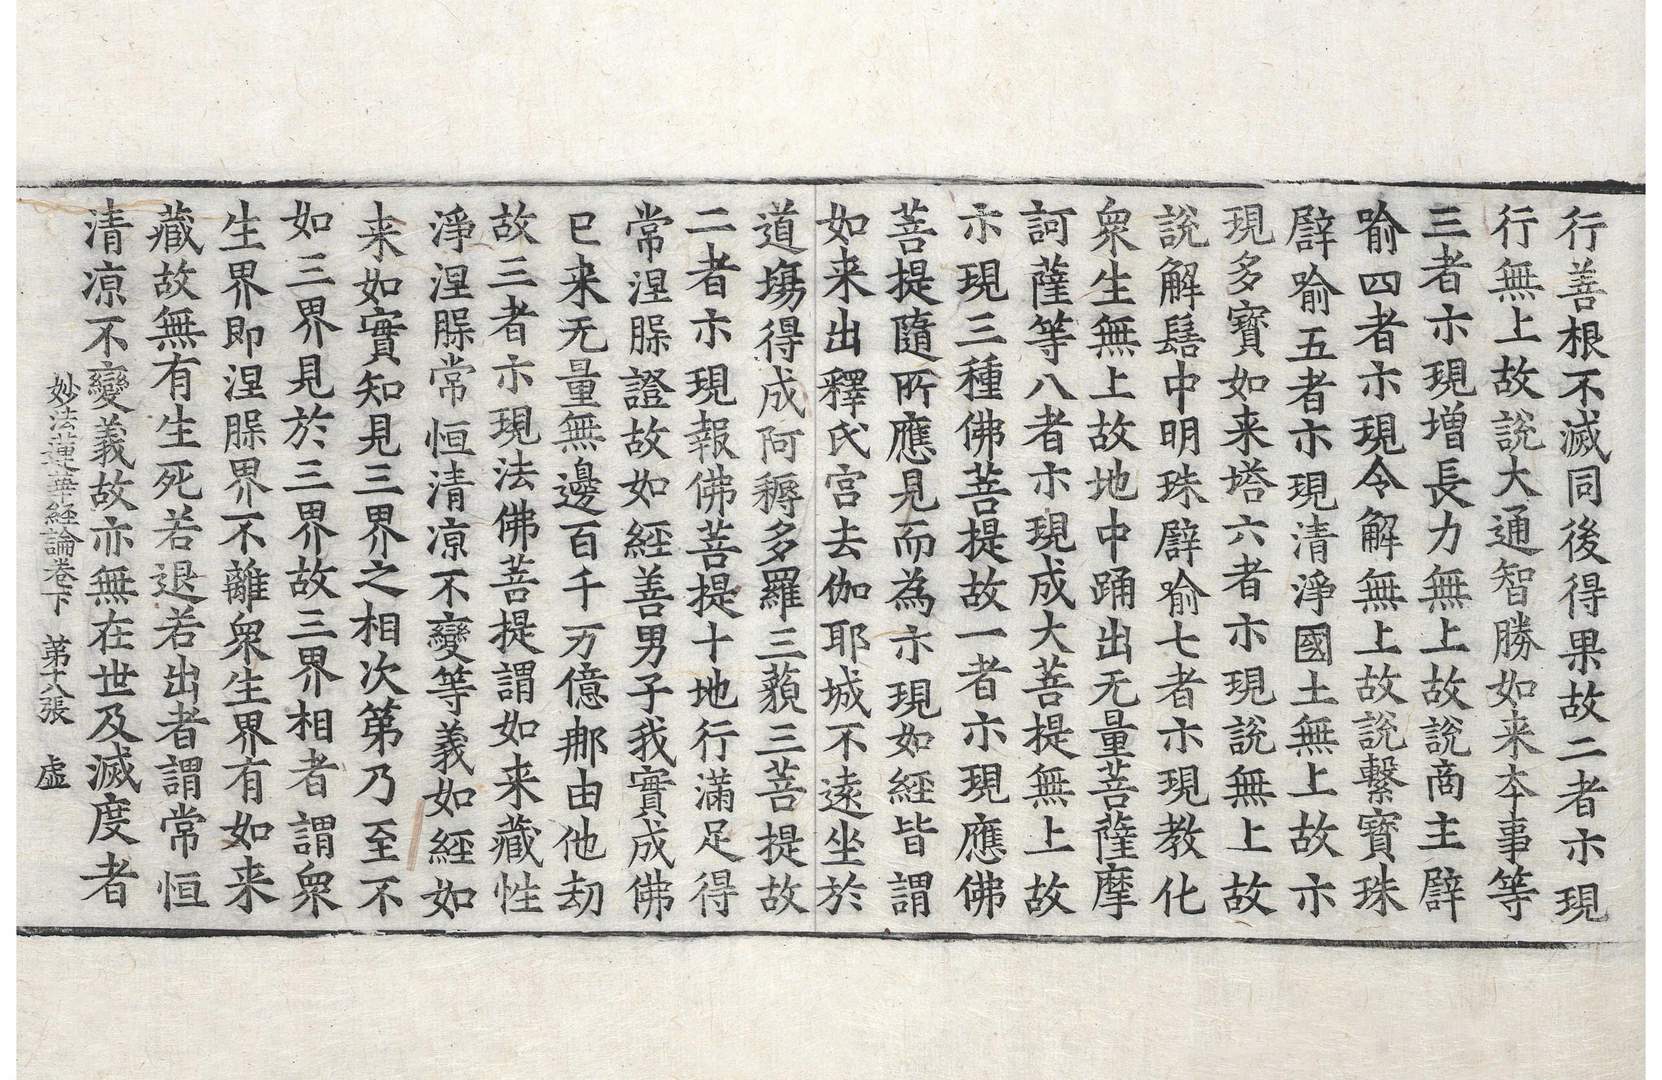 行善根不滅同後得果故二者示現
行無上故說大通智勝如来本事等
三者示現增長力無上故說商主譬
喻四者示現令解無上故說繫寶珠
譬喻五者示現清淨國土無上故示
現多寶如来塔六者示現說無上故
說解髻中明珠譬喻七者示現教化
衆生無上故地中踊出无量菩薩摩
訶薩等八者示現成大菩提無上故
示現三種佛菩提故一者示現應佛
菩提隨所應見而為示現如經皆謂
如来出釋氏宮去伽耶城不遠坐於
道場得成阿耨多羅三藐三菩提故
二者示現報佛菩提十地行滿足得
常涅槃證故如經善男子我實成佛
已来无量無邊百千万億那由他劫
故三者示現法佛菩提謂如来藏性
淨涅槃常恒清凉不變等義如經如
来如實知見三界之相次第乃至不
如三界見於三界故三界相者謂衆
生界即涅槃界不離衆生界有如来
藏故無有生死若退若出者謂常恒
清凉不變義故亦無在世及滅度者
妙法蓮華經論卷下 第十八張 虛